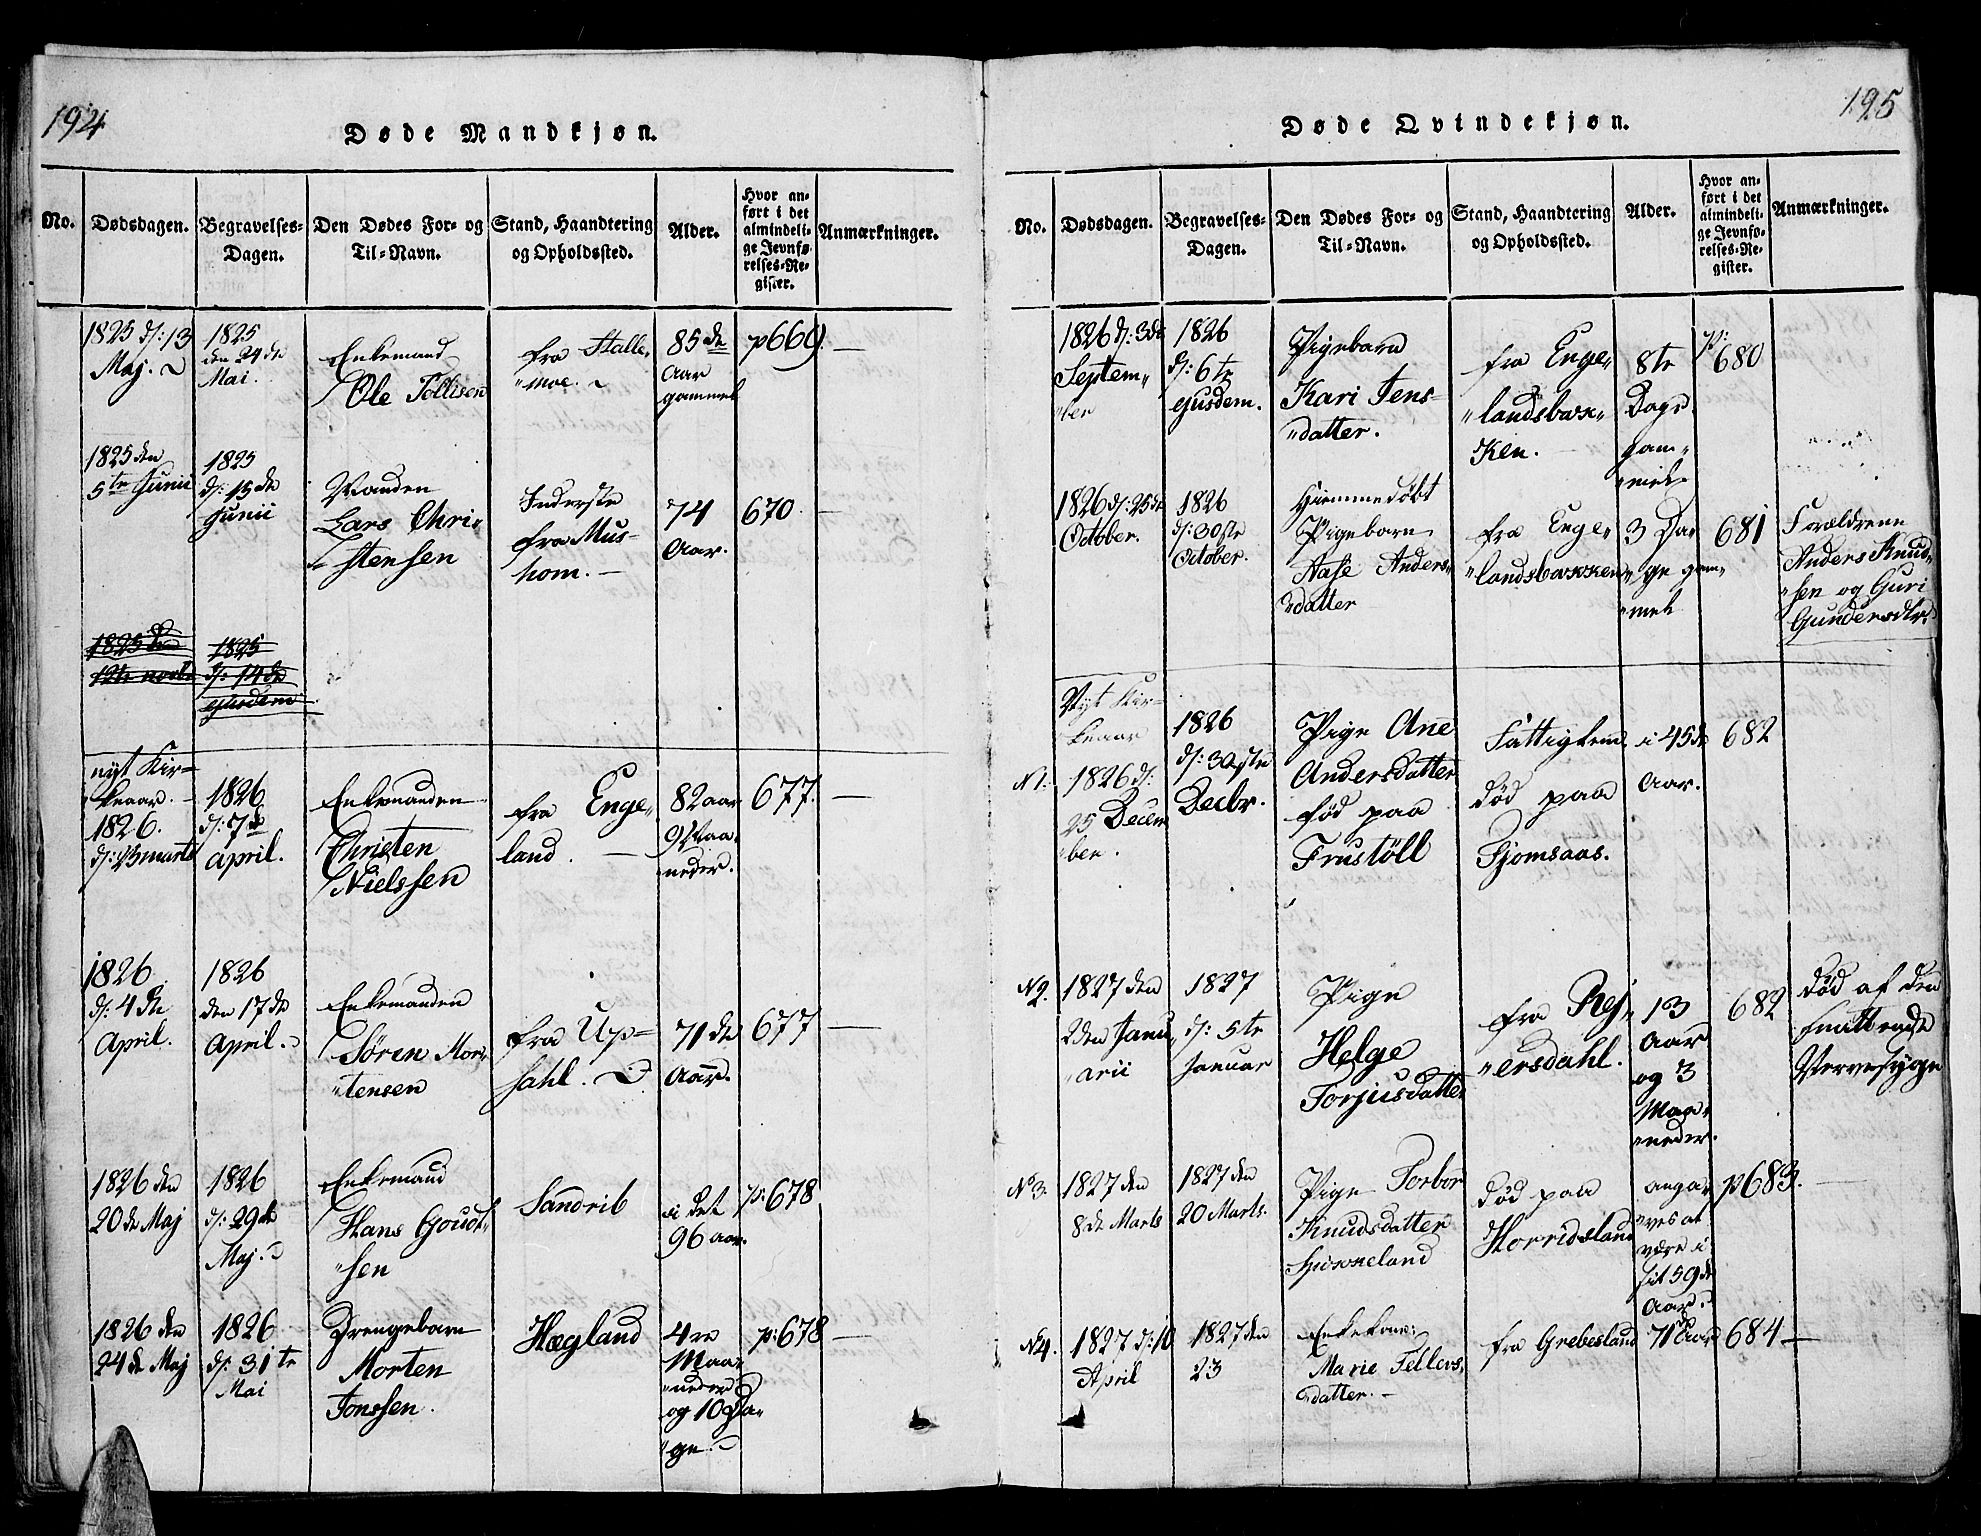 194
Døde Mandkjøn.
No.
Dødsdagen.
Begravelses-
Dagen.
Den Dødes For- og
Til-Navn.
Stand, Haandtering
og Opholdssted.
Alder.
Hvor an-
ført i det
almindeli-
ge Jevnfø-
relses-Re-
gister.
Anmærkninger.
1825 d: 13
Maj.
1825
den 24de
Mai.
Enkemand
Ole Tollisen
fra Stalle-
"moe.
85de
Aar
gammel
p669.
—
1825 den
5te Junii
1825
d: 15de
Junii
Manden
Lars Chri-
stensen
Inderste
fra Mus-
hom. —
74
Aar.
670.
—
1825 den
12te novbr
1825
d: 14de
ejusdem
nyt Kir-
keaar. —
1826.
d: 23 marts
1826
d: 7de
April.
Enkemanden
Christen
Nielssen
fra Enge-
land. —
82 aar
9 Maa-
neder.
677.
—
1826
d: 4de
April.
1826
den 17de
April.
Enkemanden
Søren Mor-
"tensen
fra Up-
sahl.
71de
Aar.
677
—
1826 den
20de Maj
1826
d: 29de
Maj.
Enkemand
Hans Goudt-
"sen
Sandrib
i det
96 aar.
p: 678
1826 den
24de Maj
1826
d: 31te
Mai
Drengebarn
Morten
Jonssen.
Hægland
4re
Maa-
"neder
og 10 Da-
"ge.
p: 678
—
195
Døde Qvindekjøn.
No.
Dødsdagen.
Begravelses-
Dagen.
Den Dødes For- og
Til-Navn.
Stand, Haandtering
og Opholdssted.
Alder.
Hvor an-
ført i det
almindeli-
ge Jevnfø-
relses-Re-
gister.
Anmærkninger.
1826 d: 3de
Septem-
"ber
1826
d: 6te
ejusdem.
Pigebarn
Kari Jens-
"datter.
fra Enge-
"landsbak-
Ken. —
8te
Dage
gam-
"mel
p:
680
1826 d: 25de
October.
1826
d: 30ste
October.
Hiemmedøbt
Pigebarn
Aase Anders-
"datter
fra Enge-
"landsbakken
3 Da-
"ge gam-
"mel
681
Forældrene
Anders Knud-
"sen og Guri
Gundersdtr.
Nyt Kir-
keaar
N1.
1826 d:
25 Decem-
"ber.
1826
d: 30ste
Decbr.
Pige Ane
Andersdatter
fød paa
Frustöll
Fattiglem
død paa
Fjomsaas.
i 45de
Aar.
682
N2.
1827 den
2den Janu-
"arii
1827
d: 5te
Januar
Pige
Helge
Torjusdatter
fra Rej-
"ersdahl.
13
Aar
og 3
Maa-
"neder.
682
død af den
smittende
Nervesyge
No 3.
1827 den
8de Marts
1827 den
20 Marts.
Pige Torbor
Knudsdatter
død paa
Horridsland
anga-
"ves at
være i
sit 59de
Aar.
p683.
—
N4.
1827 d: 10
April
1827 den
23
Enkekone:
Marie Tellevs-
"datter. —
fra Grebesland
71 Aar
684
—